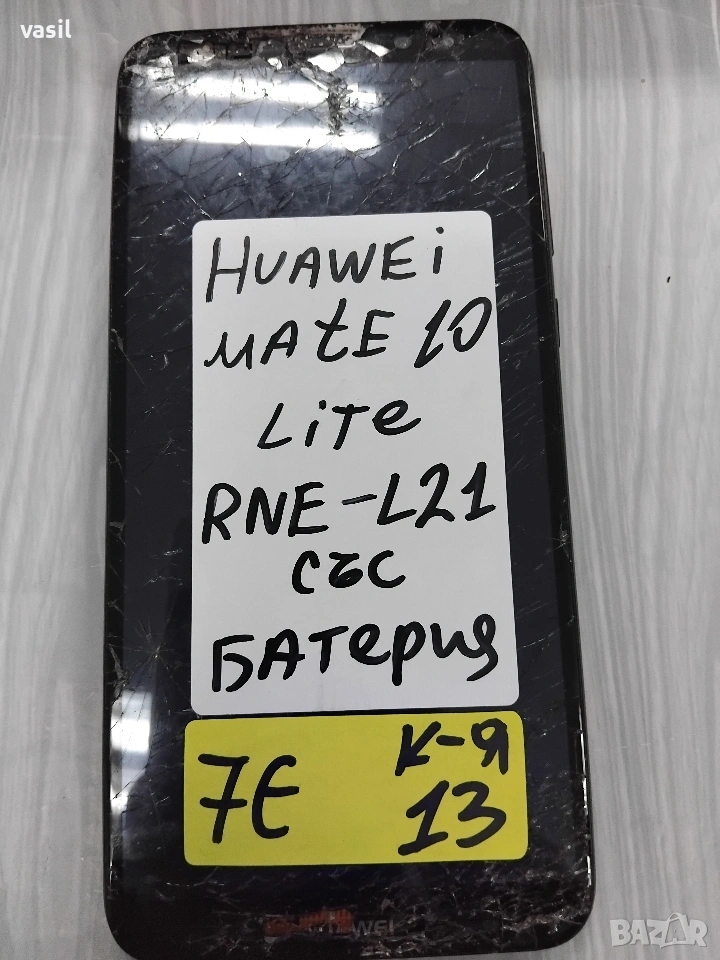 vasil
HUAWEI
MATE 10
LiTe
RNE-L21
със
БАТерия
7E
К-Я
13
HUAWEI
BAZAR